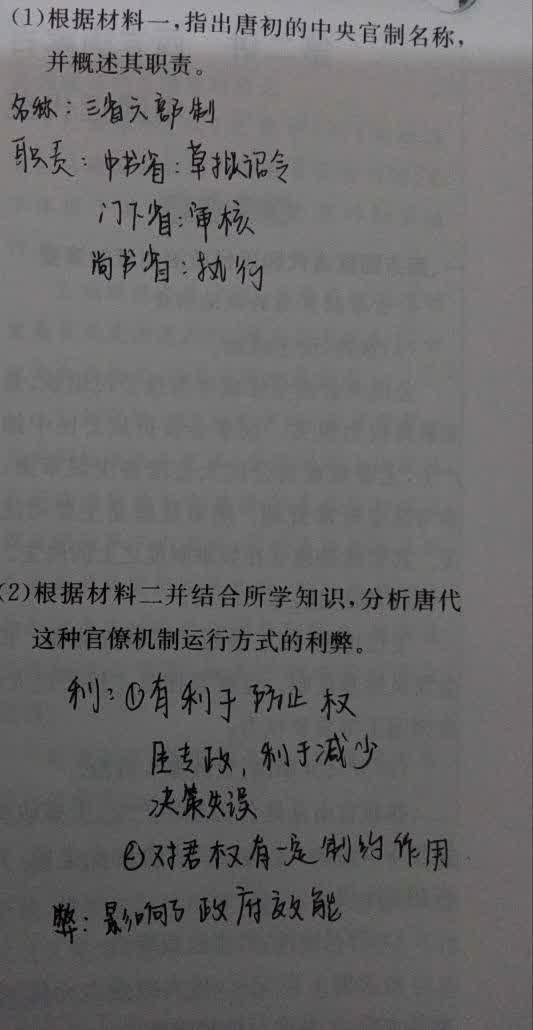 (1)根据材料一,指出唐初的中央官制名称,
并概述其职责。
名称：三省六部制
职责：中书省：草拟诏令
门下省：审核
尚书省：执行
(2)根据材料二并结合所学知识,分析唐代
这种官僚机制运行方式的利弊。
利：①有利于防止权
臣专政，利于减少
决策失误
②对君权有一定制约作用.
弊：影响了政府效能